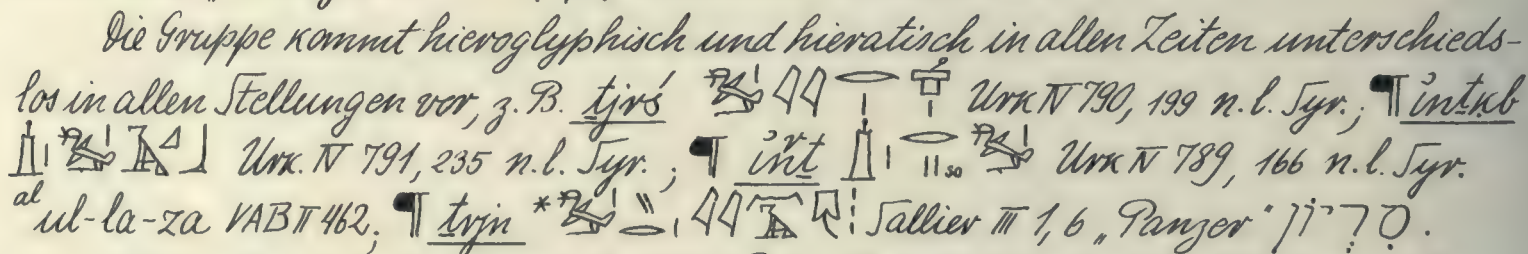 Die Gruppe kommt hieroglyphisch und hieratisch in allen Zeiten unterschieds-
los in allen Stellungen vor, z. B. tjrś Urk IV 790, 199 n. l. Syr.; ¶ i҆ntkb
Urk. IV 791, 235 n. l. Syr.; ¶ i҆rt Urk IV 789, 166 n. l. Syr.
al ul-la-za VAB II 462; ¶ trjn * Sallier III 1, 6 „Panzer“ סִרְיֹן.